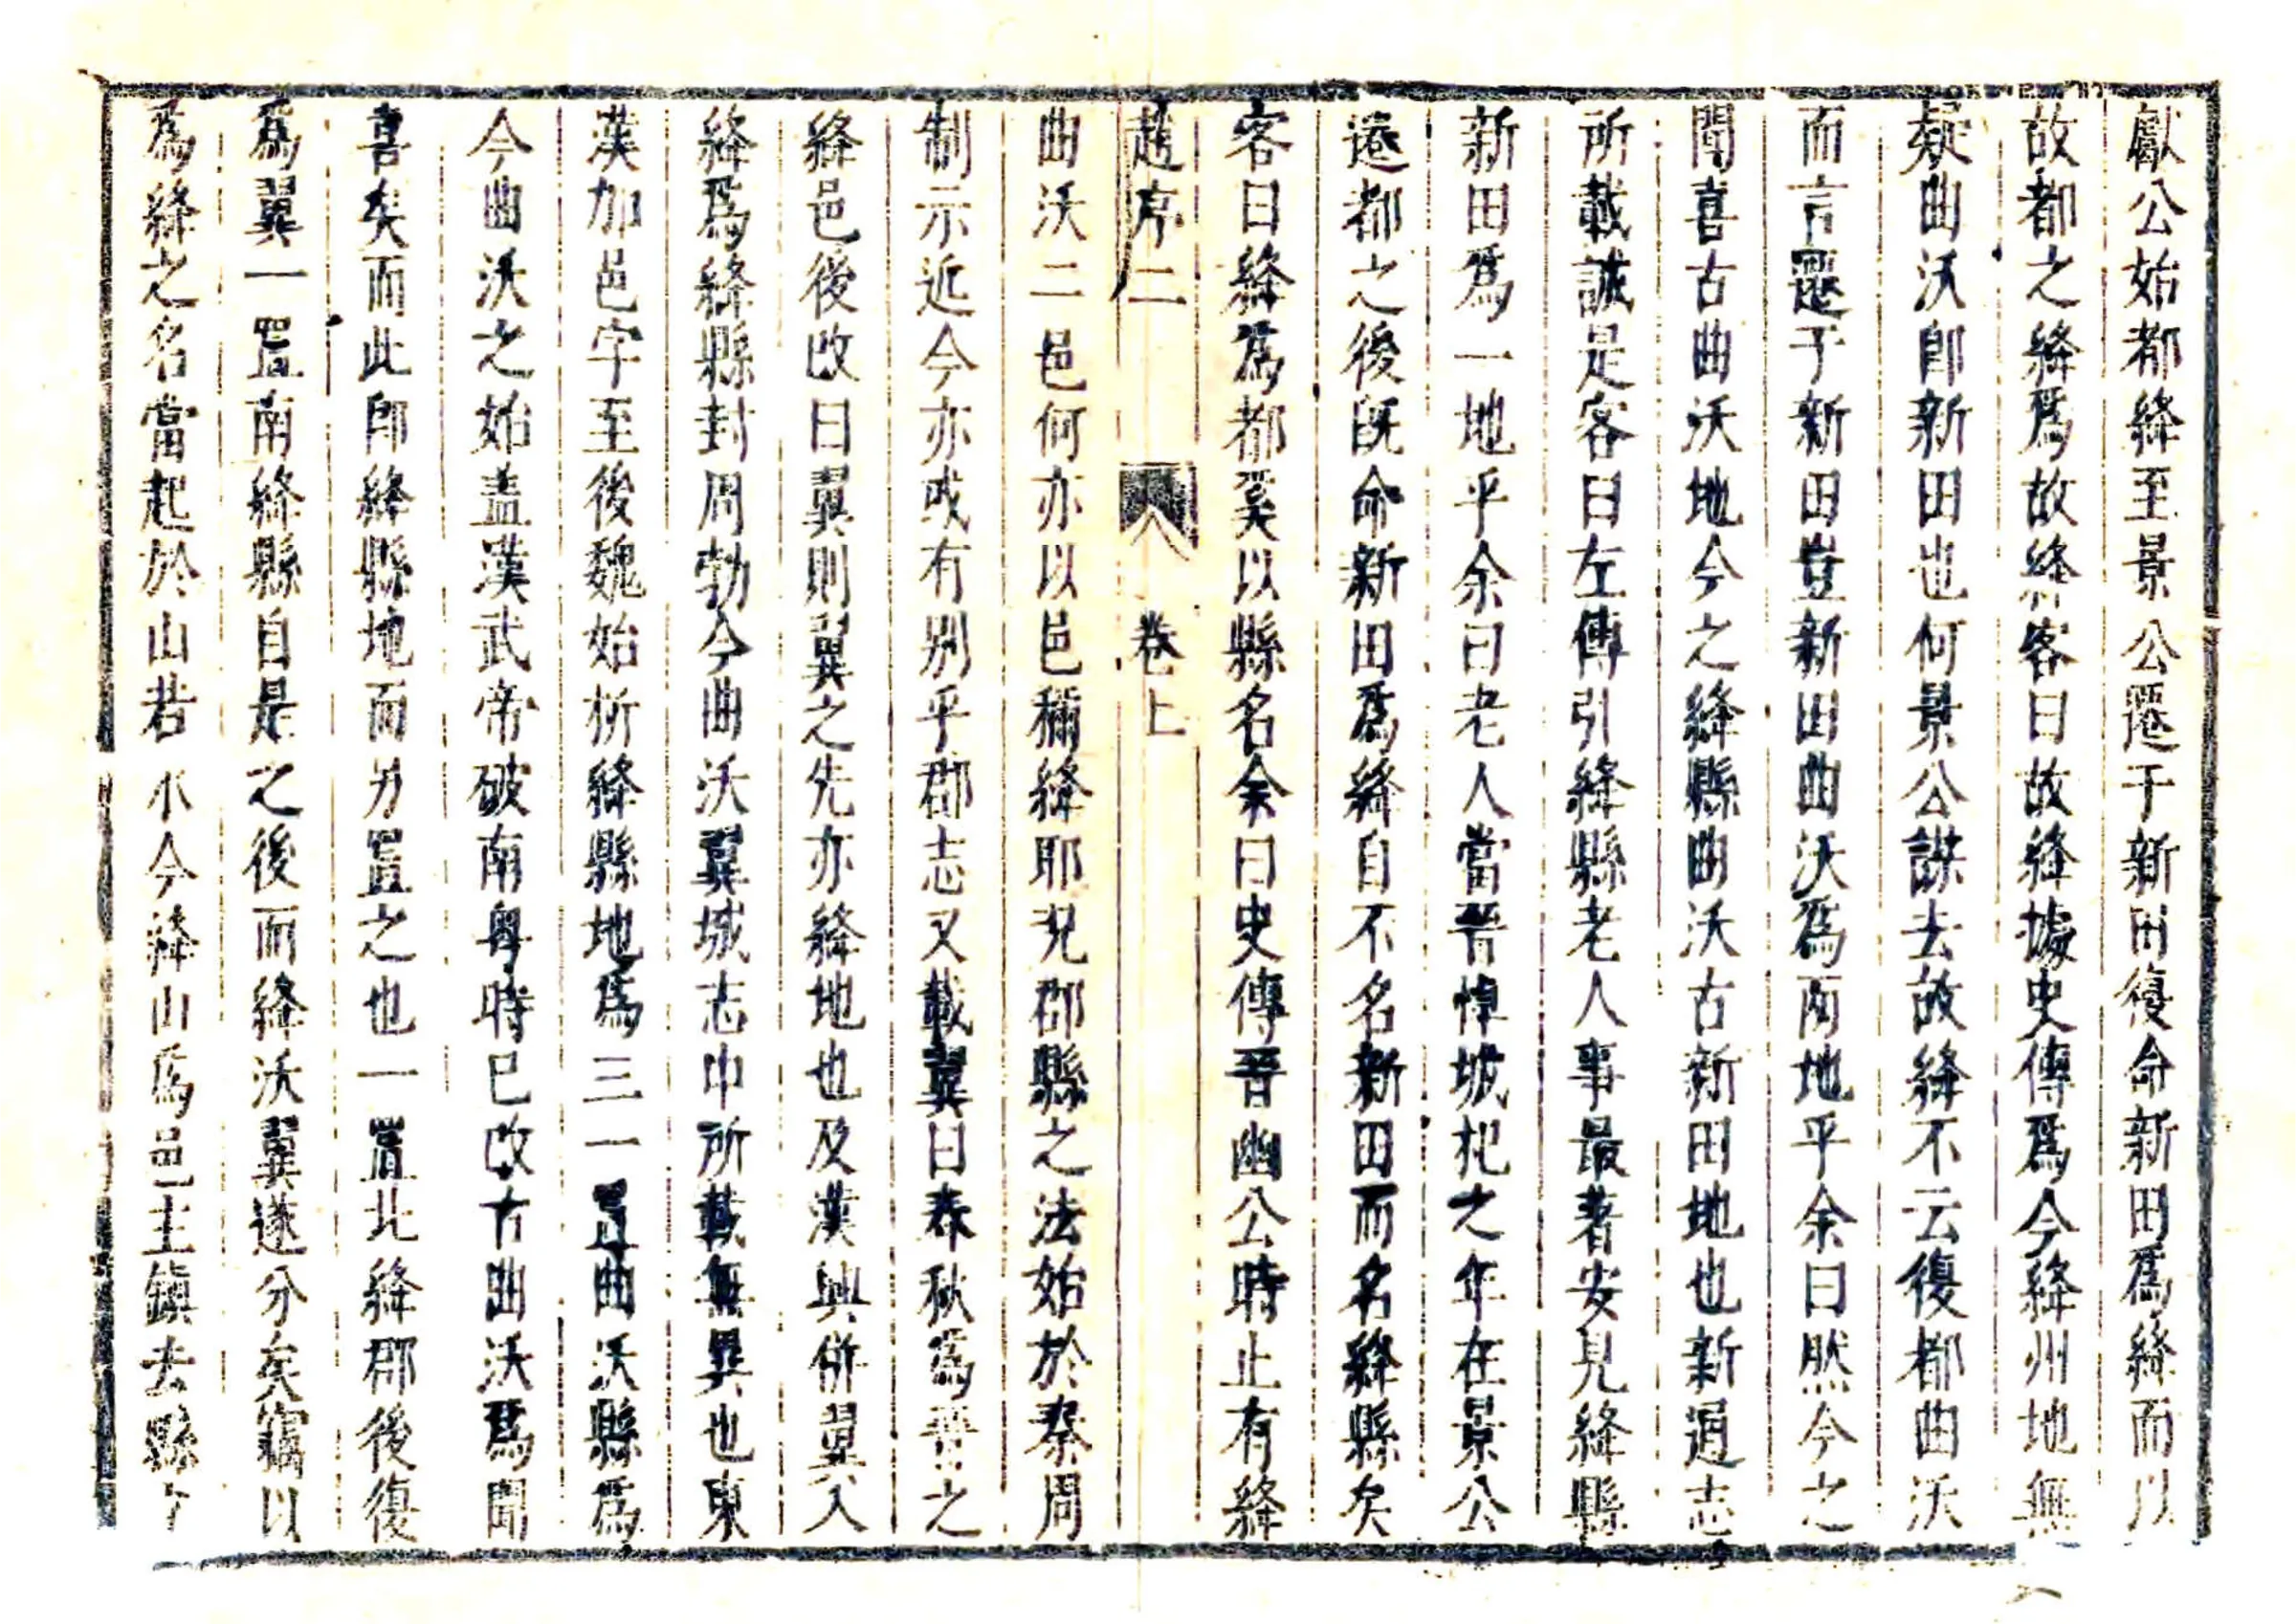 獻公始都絳至景公遷于新田復命新田爲絳而以
故都之絳爲故絳客曰故絳據史傳爲今絳州地無
疑曲沃卽新田也何景公謀去故絳不云復都曲沃
而言遷于新田豈新田曲沃爲兩地乎余曰然今之
聞喜古曲沃地今之絳縣曲沃古新田地也新通志
所載誠是客曰左傳引絳縣老人事最著安見絳縣
新田爲一地乎余曰老人當晉悼城杞之年在景公
遷都之後旣命新田爲絳自不名新田而名絳縣矣
客曰絳爲都奚以縣名余曰史傳晉幽公時止有絳
趙序二 卷上
曲沃二邑何亦以邑稱絳耶況郡縣之法始於秦周
制示近今亦或有别乎郡志又載翼曰春秋爲晉之
絳邑後改曰翼則翼之先亦絳地也及漢興併翼入
絳爲絳縣封周勃今曲沃翼城志中所載無異也東
漢加邑字至後魏始析絳縣地爲三一置曲沃縣爲
今曲沃之始盖漢武帝破南粤時已改古曲沃爲聞
喜矣而此卽絳縣地而另置之也一置北絳郡後復
爲翼一置南絳縣自是之後而絳沃翼遂分矣竊以
爲絳之名當起於山若水今絳山爲邑主鎮去縣